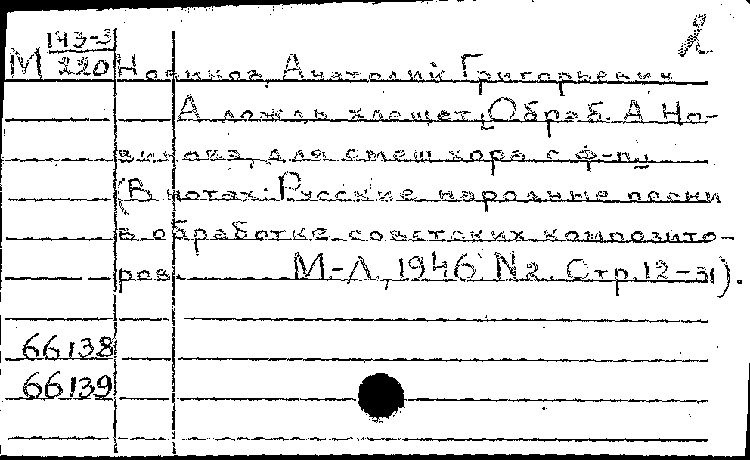 2
143-3
М 220 Новиков, Анатолий Григорьевич
А дождь хлещет. Обраб. А Но-
викова, для смеш хора с ф-п.
(В нотах: Русские народные песни
в обработке советских композито-
ров. М-Л, 1946 N2. Стр. 12-31).
66138
66139